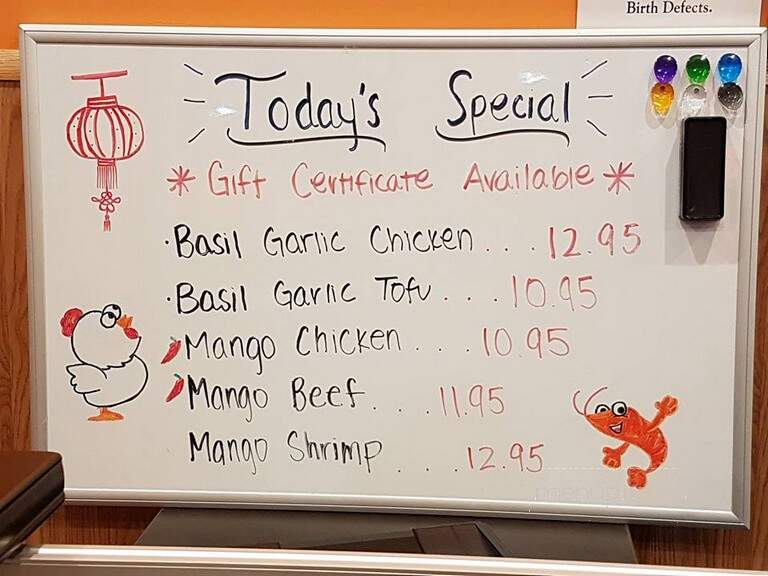 Birth Defects.
Today's Special
* Gift Certificate Available *
· Basil Garlic Chicken . . . 12.95
· Basil Garlic Tofu . . . 10.95
Mango Chicken . . . 10.95
Mango Beef . . . 11.95
Mango Shrimp . . . 12.95
menupix